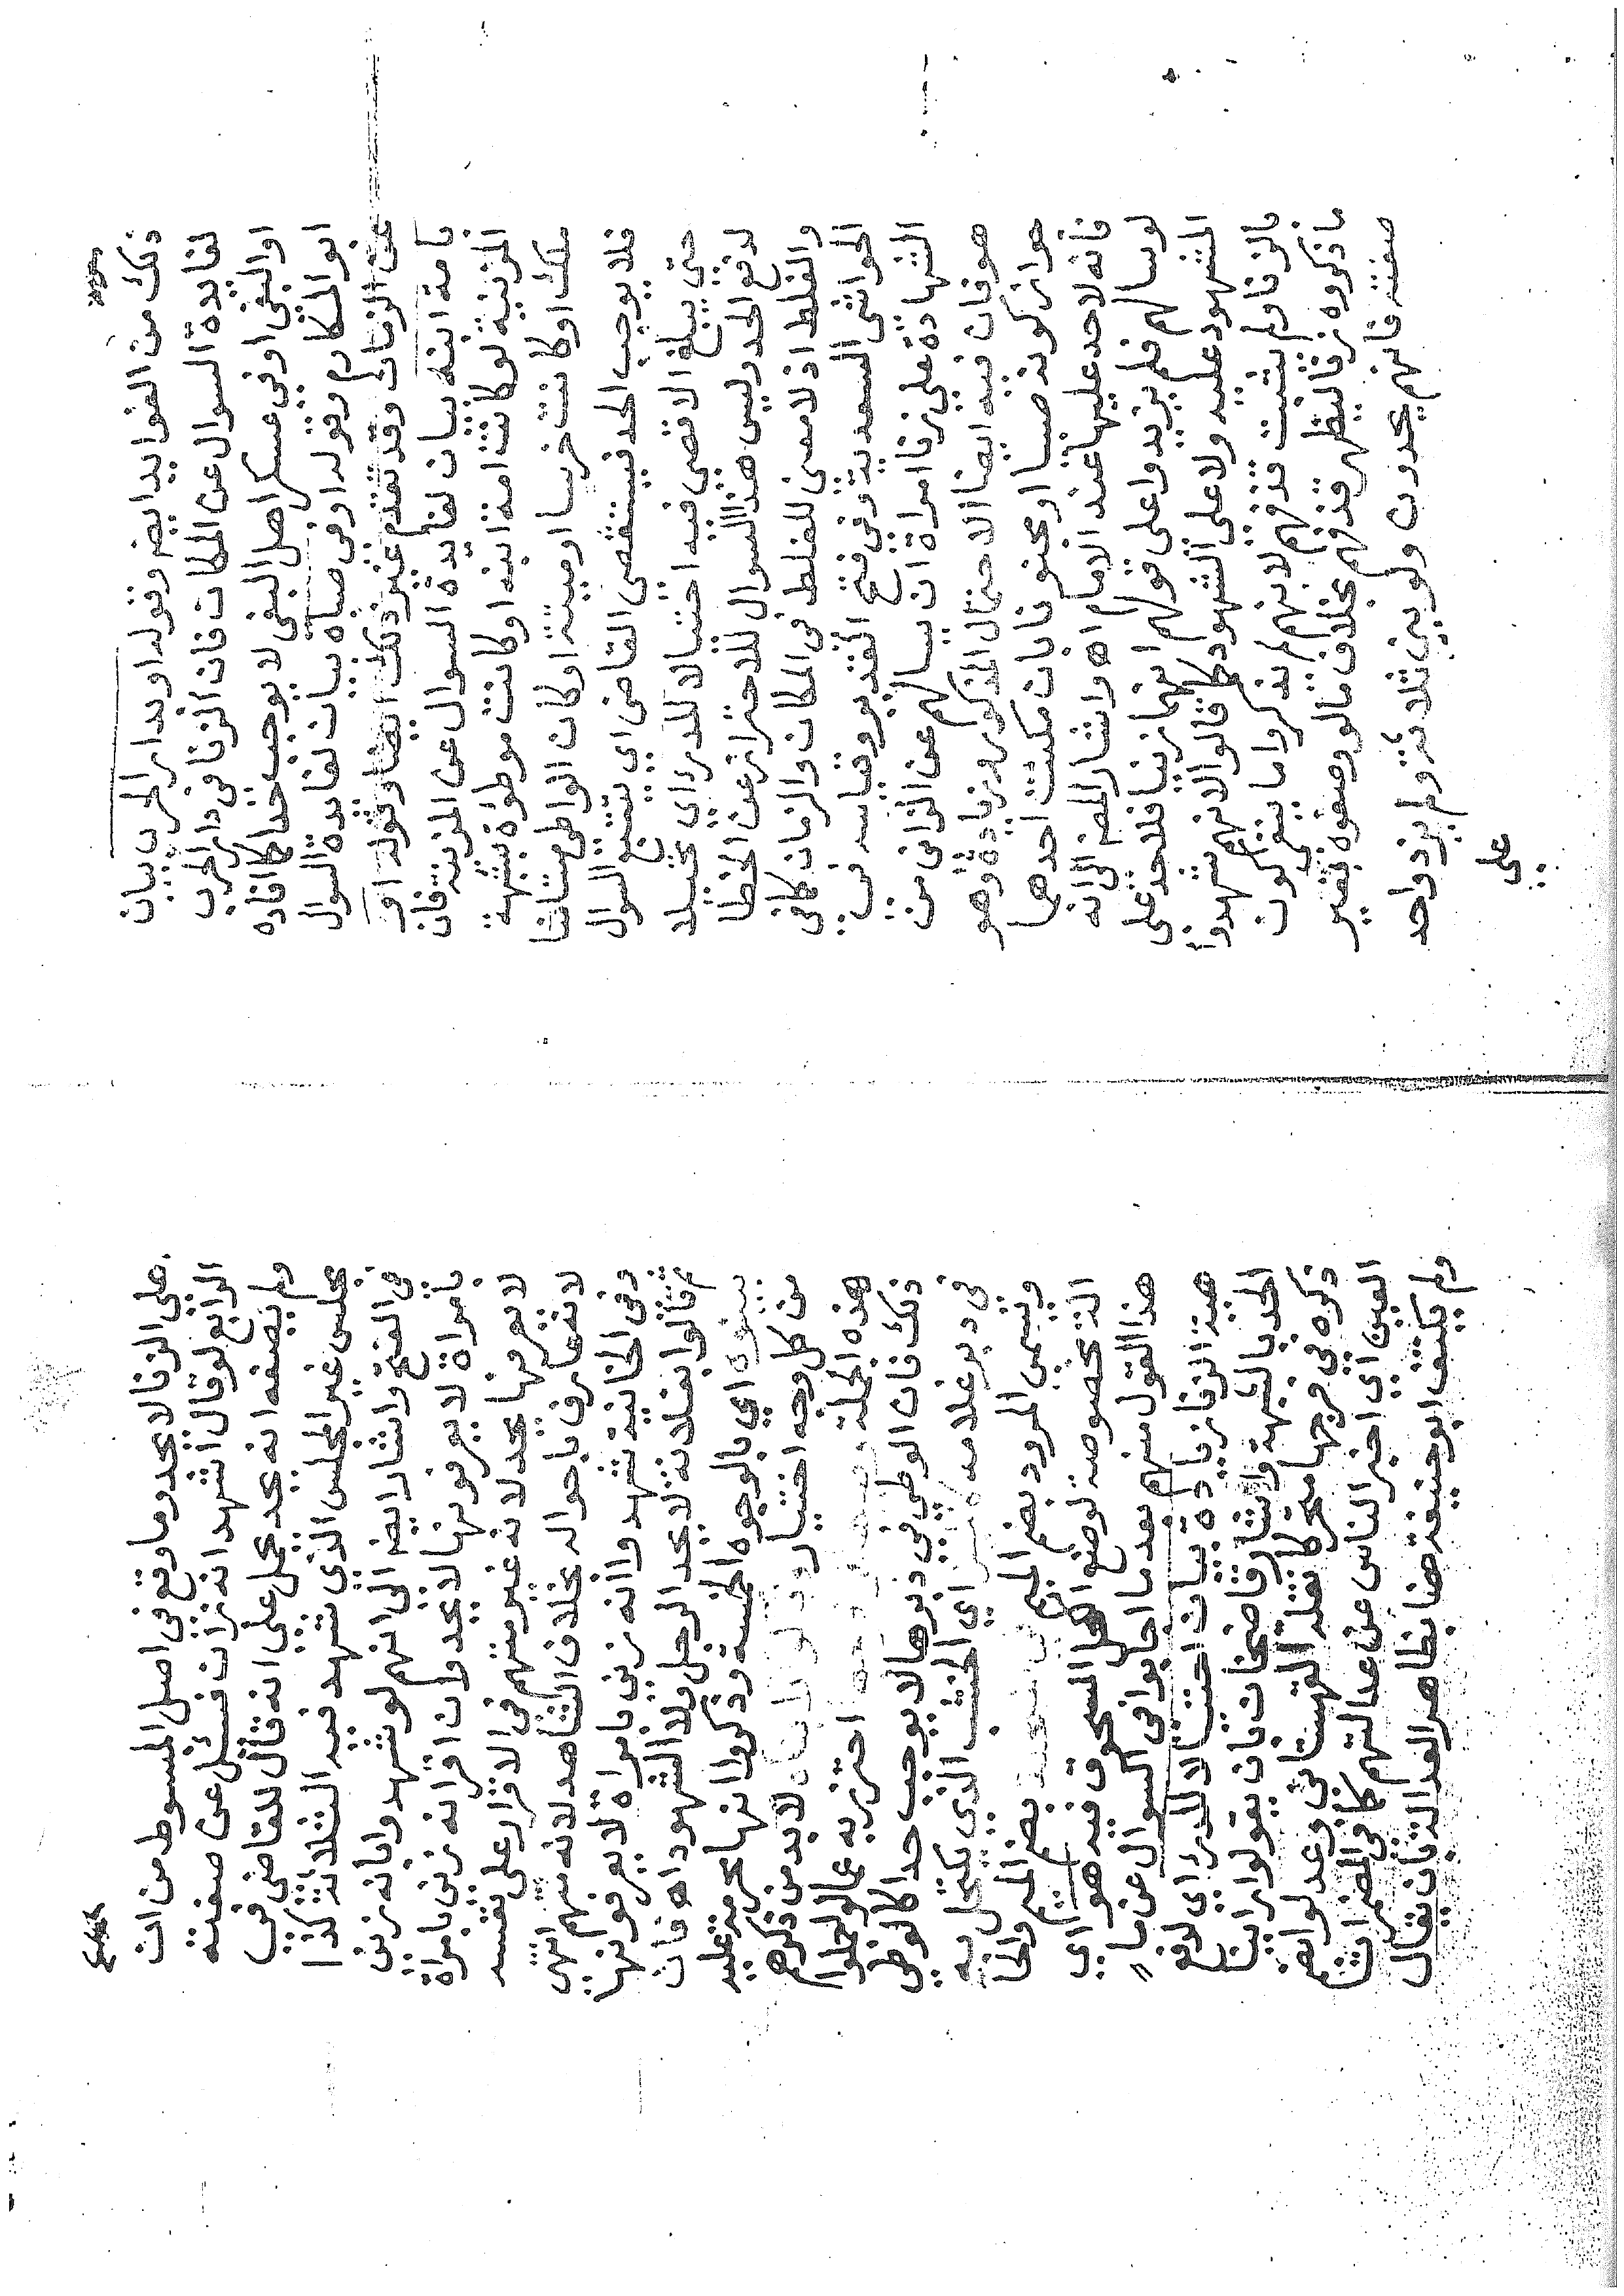 ذلك من الفوايد ايضا وقوله او بدار الحرب بيان
لفايدة السوال عن المكان فان الزنا في دار الحرب
او البغي اوفي عسكر اهل البغي لا يوجب حدا كما افاده
ابو المكارم وقوله اوفي صباه بيان لفايدة السوال
عن الزمان وقد تقدم غير ذلك ايضا وقوله او
بامة ابنه بيان لفايدة السوال عن المزنية فان
المزنية لو كانت امة ابنه او كانت موطؤة بشبهة
ملك او كانت خرسا او ميتة او كان الواطي مستامنا
فلا يوجب الحد فيستقصي القاضي اي يتتبع السوال
حتى يبلغ الاقصى فيه احتيالا للدراي تحيلا
لدفع الحد وليس هذا السوال للاحتراز عن الخطا
والغلط اذ لا معنى للغلط في المكان والزمان كما في
الحواشي السعدية وفي فتح القدير وقياسه في
الشهادة على زنا امراة ان يسالهم عن الزاني من
هو فان فيه ايضا الاحتمال المذكور وزيادة وهو
جواز كونه صبيا او مجنونا بان مكنت احدهما
فانه لاحد عليها عند الامام اه واشار المص الى انه
لو سالهم فلم يزيدوا على قولهم انهما زنيا فلا حد على
المشهود عليه ولا على الشهود كما قالوا لانهم شهدوا
بالزنا ولم يثبت قذفهم لانهم لم يذكروا ما ينفي كون
ما ذكروه زنا ليظهر قذفهم بخلاف ما لو وصفوه بغير
صفته فانهم يحدون ولو بين ثلاثة ولم يزد واحد
على
على الزنا لا يحد وما وقع في اصل المبسوط من ان
الرابع لو قال اشهد انه زان فسئل عن صفته
ولم يصفه انه يحد يحمل على انه قال للقاضي في
مجلس غير المجلس الذي شهد فيه الثلاثة كذا
في الفتح واشار ايضا الى انهم لو شهدوا بانه زنى
بامراة لا يعرفونها لا يحد وان اقر انه زنى بامراة
لا يعرفها يحد لانه غير متهم في الاقرار على نفسه
لا تتعارف باحواله بخلاف الشاهد لانه متهم انتهى
وفي الخانية شهدوا انه زنى بامراة لا يعرفونها
ثم قالوا بفلانة لا يحد الرجل ولا الشهود اه فان
بينوه اي بالوجوه الخمسة وذكروا انها محرمة عليه
من كل وجه لا بد من ذكرهم
هذه الجملة احترز به عما لو حملوا
ذلك فان الوطي في دبرها لا يوجب حدا كالوطي
في دبر غلامه اي الخشب الذي يكتحل به
ويسمى المرود بضم الميم والخا
التي مخصوصة لوضع الكحل المسحوق فيه هو اي
هذا القول منهم بعد ما اجابوا في السوال عن ما
هية الزنا زيادة بيان احتيالا للدراي لدفع
الحد بالشبهة واشار قاضيخان بان يقولوا راينا
ذكره في فرجها متحركا نقله القهستاني وعدلوا بصيغة
المبني اي اخبر الناس عن عدالتهم كما في المضمرات
ولم يكتف ابو حنيفة هنا بظاهر العدالة بان يقال